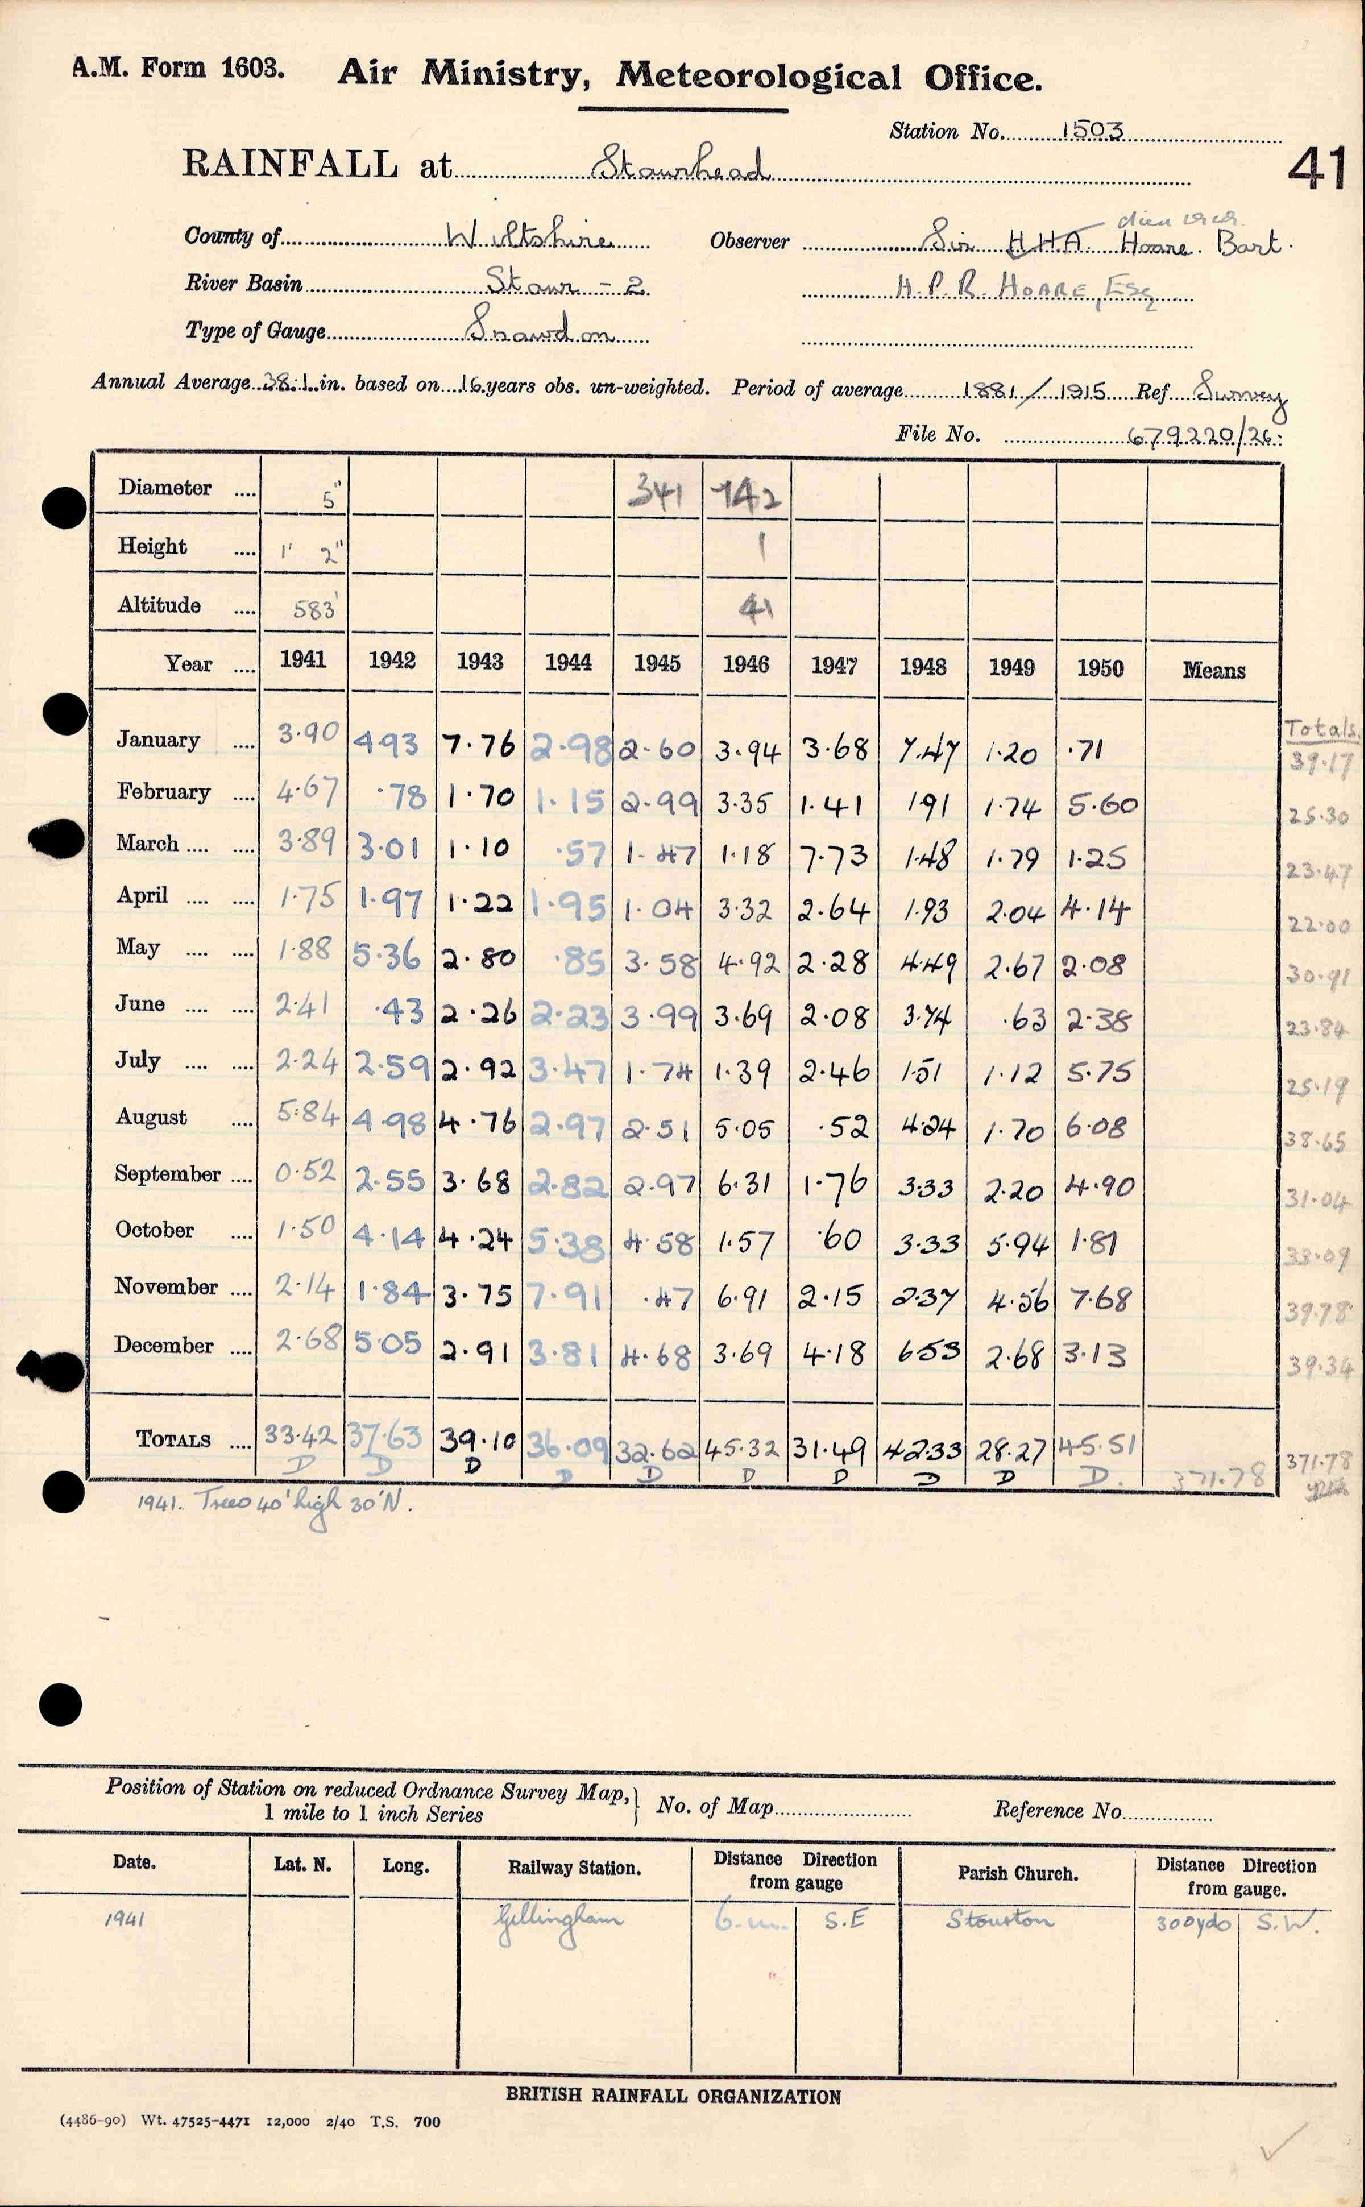 A.M. Form 1603. Air Ministry, Meteorological Office.
Station No. 1503
41
RAINFALL at Stourhead
County of Wiltshire Observer Sir H H A Hoare Bart.
River Basin Stour - 2 H. P. R. HOARE, Esq
Type of Gauge Snowdon
Annual Average 38.1 in. based on 16 years obs. un-weighted. Period of average 1881/1915 Ref Survey
File No. 679220/26
Diameter .... 5" 341 742
Height .... 1' 2" 1
Altitude .... 583' 41
Year .... 1941 1942 1943 1944 1945 1946 1947 1948 1949 1950 Means
Totals
January .... 3.90 4.93 7.76 2.98 2.60 3.94 3.68 7.47 1.20 .71 39.17
February .... 4.67 .78 1.70 1.15 2.99 3.35 1.41 1.91 1.74 5.60 25.30
March .... .... 3.89 3.01 1.10 .57 1.47 1.18 7.73 1.48 1.79 1.25 23.47
April .... .... 1.75 1.97 1.22 1.95 1.04 3.32 2.64 1.93 2.04 4.14 22.00
May .... .... 1.88 5.36 2.80 .85 3.58 4.92 2.28 4.49 2.67 2.08 30.91
June .... .... 2.41 .43 2.26 2.23 3.99 3.69 2.08 3.74 .63 2.38 23.84
July .... .... 2.24 2.59 2.92 3.47 1.74 1.39 2.46 1.51 1.12 5.75 25.19
August .... 5.84 4.98 4.76 2.97 2.51 5.05 .52 4.24 1.70 6.08 38.65
September .... 0.52 2.55 3.68 2.82 2.97 6.31 1.76 3.33 2.20 4.90 31.04
October .... 1.50 4.14 4.24 5.38 4.58 1.57 .60 3.33 5.94 1.81 33.09
November .... 2.14 1.84 3.75 7.91 .47 6.91 2.15 2.37 4.56 7.68 39.78
December .... 2.68 5.05 2.91 3.81 4.68 3.69 4.18 6.53 2.68 3.13 39.34
TOTALS .... 33.42 37.63 39.10 36.09 32.62 45.32 31.49 42.33 28.27 45.51 371.78
D D D D D D D D D D. 371.78
1941. Trees 40' high 30' N.
Position of Station on reduced Ordnance Survey Map, 1 mile to 1 inch Series } No. of Map Reference No.
Date. Lat. N. Long. Railway Station. Distance Direction from gauge Parish Church. Distance Direction from gauge.
1941 Gillingham 6 m. S.E Stourton 300 yds S.W.
BRITISH RAINFALL ORGANIZATION
(4486-90) Wt. 47525-4471 12,000 2/40 T.S. 700